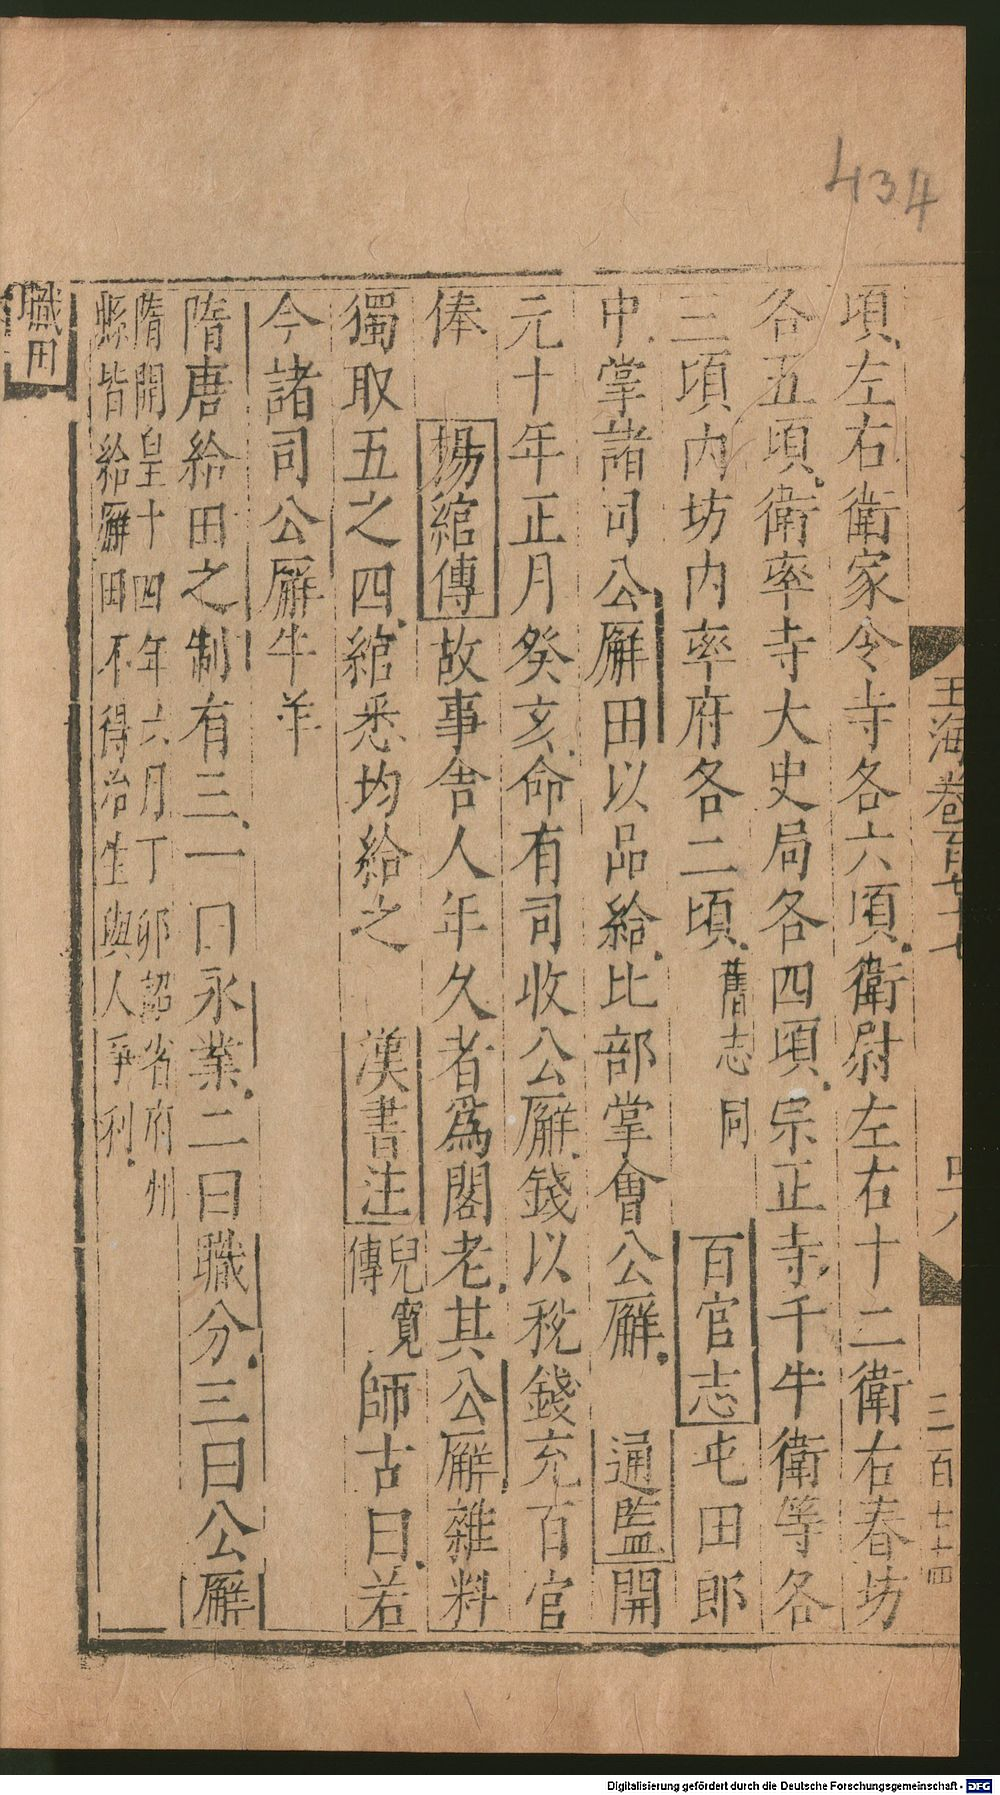 434
玉海卷百七十七
三百七十四
項左右衛家令寺各六項衛尉左右十二衛右春坊
各五項衛率寺大史局各四項宗正寺千牛衛等各
三項內坊內率府各二項舊志同百官志屯田郎
中掌諸司公廨田以品給比部掌會公廨通監開
元十年正月癸亥命有司收公廨錢以稅錢充百官
俸楊綰傳故事舍人年久者爲閣老其公廨雜料
獨取五之四綰悉均給之漢書注兒寬傳師古曰若
今諸司公廨牛羊
隋唐給田之制有三一曰永業二曰職分三曰公廨
隋開皇十四年六月丁卯詔省府州
縣皆給廨田不得治生與人爭利
職田
Digitalisierung gefördert durch die Deutsche Forschungsgemeinschaft - DFG